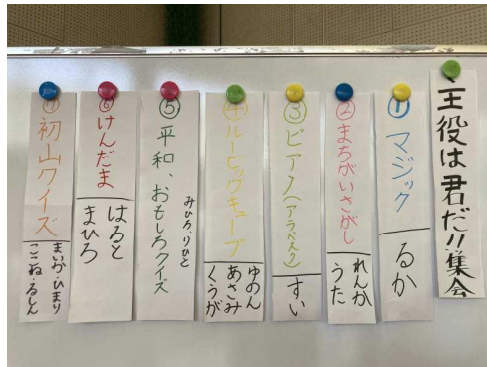 王役は君だ!!集会
①マジック
るか
②まちがいさがし
れんか
うた
③ピアノ(アラベスク)
すい
④ルービックキューブ
ゆのん
あさみ
くうが
⑤平和、おもしろクイズ
みひろ、りひと
⑥けんだま
はると
まひろ
⑦初山クイズ
まいか・ひまり
ここね・るしん